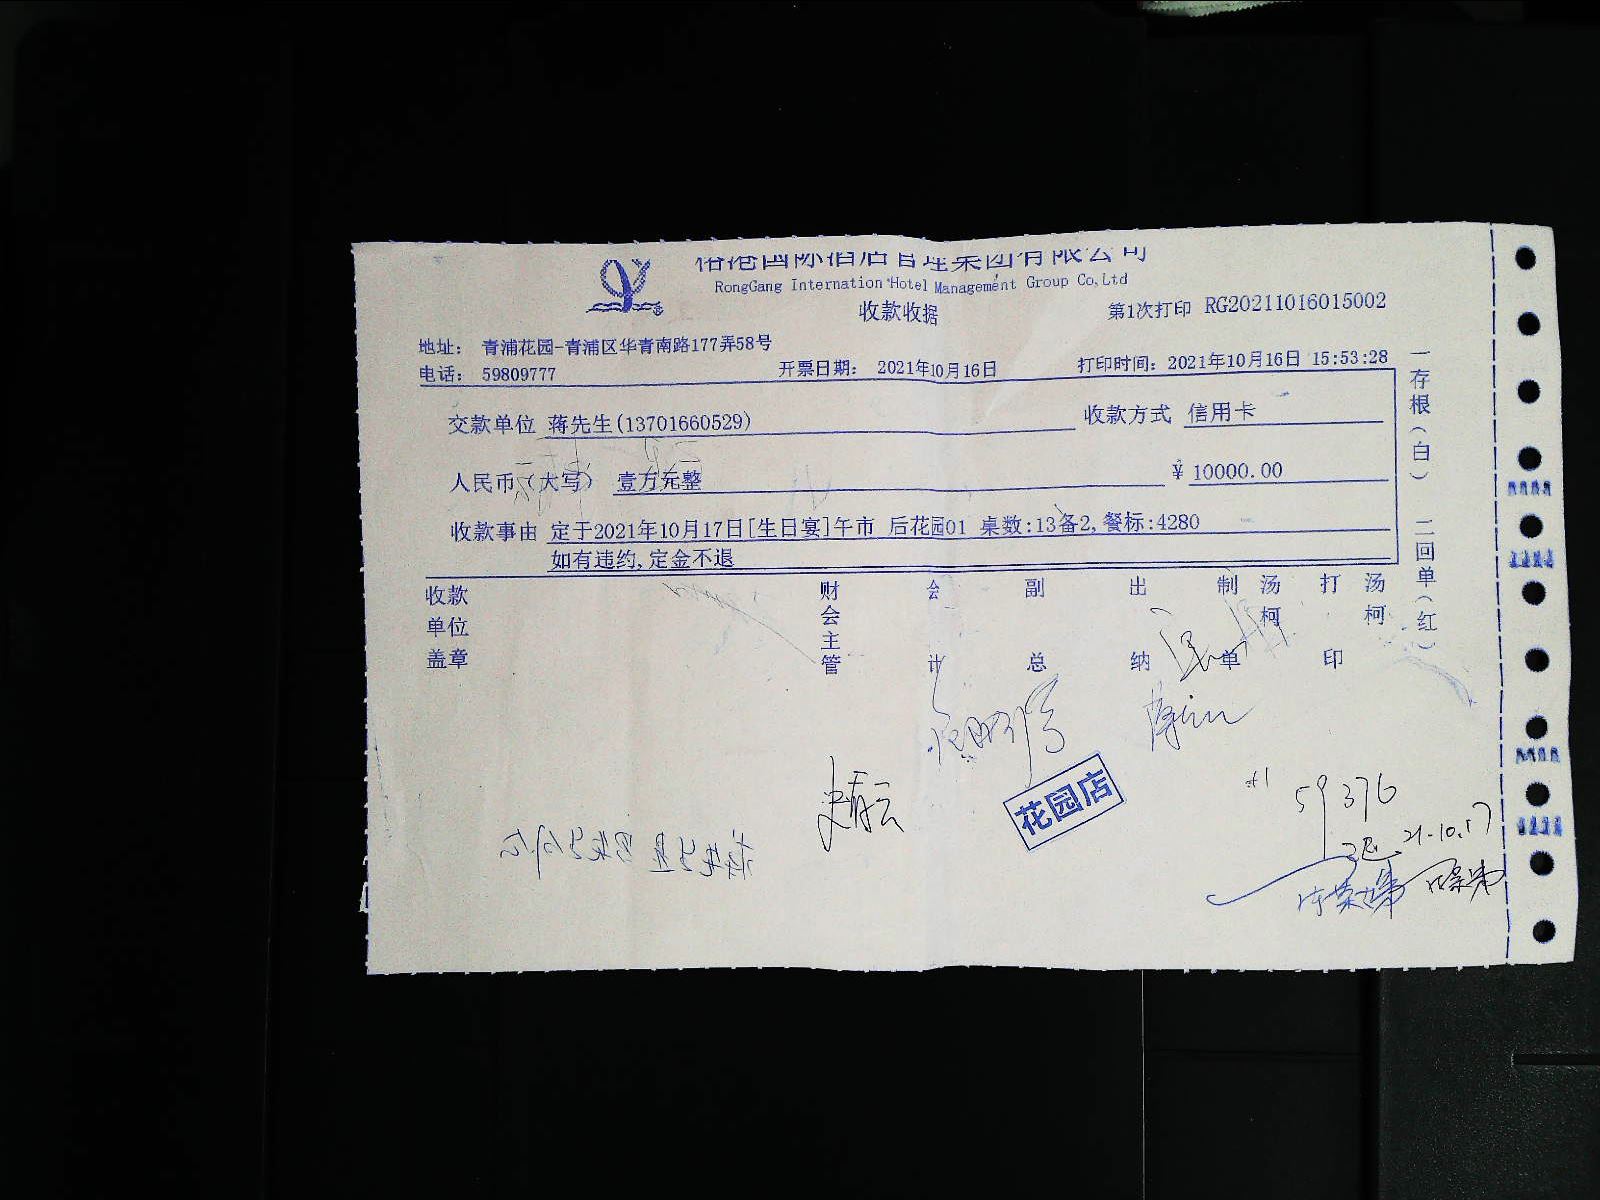 裕港国际酒店管理集团有限公司
RongGang Internation Hotel Management Group Co,Ltd
收款收据
第1次打印 RG20211016015002
地址： 青浦花园-青浦区华青南路177弄58号
电话： 59809777
开票日期： 2021年10月16日
打印时间：2021年10月16日 15:53:28
交款单位 蒋先生(13701660529)
收款方式 信用卡
人民币（大写） 壹万元整
￥ 10000.00
收款事由 定于2021年10月17日[生日宴]午市 后花园01 桌数:13备2,餐标:4280
如有违约,定金不退
收款单位盖章
财会主管
会计
副总
出纳
制单 汤柯
打印 汤柯
一存根（白） 二回单（红）
史青云
花园店
59376
21-10.17